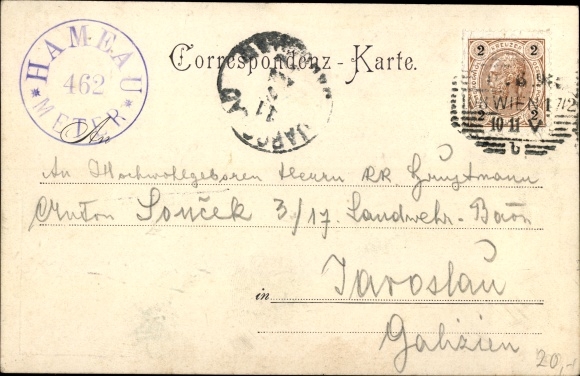 HAMEAU
462
METER
Correspondenz - Karte.
JARO
2 KREUZER 2
2 2
WIEN 17/2
10-11 V
b
An
An Hochwohlgeboren Herrn KK. Hauptmann
Anton Souček 3/17. Landwehr-Baon
in Jaroslau
Galizien
20,-